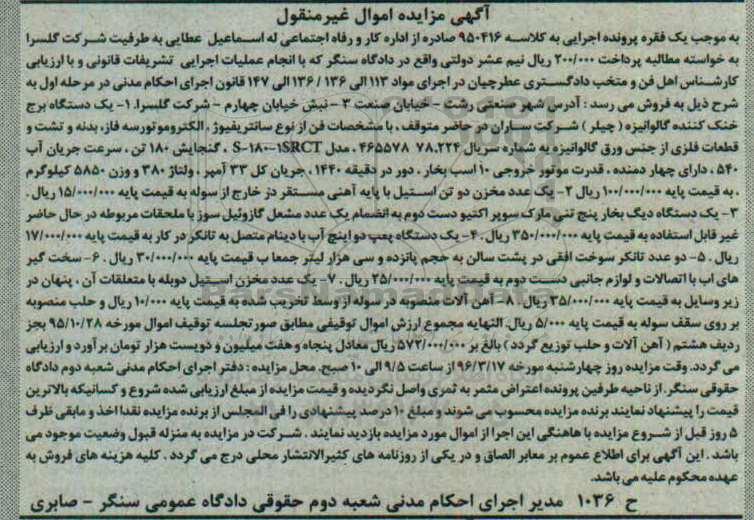 آگهی مزایده اموال غیر منقول
به موجب یک فقره پرونده اجرایی به کلاسه ۹۵۰۴۱۶ صادره از اداره کار و رفاه اجتماعی له اسماعیل عطایی به طرفیت شرکت گلسرا
به خواسته مطالبه پرداخت ۲۰۰/۰۰۰ ریال نیم عشر دولتی واقع در دادگاه سنگر که با انجام عملیات اجرایی تشریفات قانونی و با ارزیابی
کارشناس اهل فن و منتخب دادگستری عطرچیان در اجرای مواد ۱۱۳ الی ۱۳۶ / ۱۳۶ الی ۱۴۷ قانون اجرای احکام مدنی در مرحله اول به
شرح ذیل به فروش می رسد : آدرس شهر صنعتی رشت - خیابان صنعت ۳ - نبش خیابان چهارم - شرکت گلسرا. ۱- یک دستگاه برج
خنک کننده گالوانیزه ( چیلر ) شرکت ساران در حاضر متوقف ، با مشخصات فن از نوع سانتریفیوژ ، الکتروموتورسه فاز، بدنه و تشت و
قطعات فلزی از جنس ورق گالوانیزه به شماره سریال ۷۸،۲۲۴ ۴۶۵۵۷۸ ، مدل S-۱۸۰-۱SRCT ، گنجایش ۱۸۰ تن ، سرعت جریان آب
۵۴۰ ، دارای چهار دمنده ، قدرت موتور خروجی ۱۰ اسب بخار ، دور در دقیقه ۱۴۴۰ ، جریان کل ۳۳ آمپر ، ولتاژ ۳۸۰ و وزن ۵۸۵۰ کیلوگرم
، به قیمت پایه ۱۰۰/۰۰۰/۰۰۰ ریال ۲- یک عدد مخزن دو تن استیل با پایه آهنی مستقر در خارج از سوله به قیمت پایه ۱۵/۰۰۰/۰۰۰ ریال .
۳- یک دستگاه دیگ بخار پنج تنی مارک سوپر اکتیو دست دوم به انضمام یک عدد مشعل گازوئیل سوز با ملحقات مربوطه در حال حاضر
غیر قابل استفاده به قیمت پایه ۳۵۰/۰۰۰/۰۰۰ ریال . ۴- یک دستگاه پمپ دو اینچ آب با دینام متصل به تانکر در کار به قیمت پایه ۱۷/۰۰۰/۰۰۰
ریال . ۵- دو عدد تانکر سوخت افقی در پشت سالن به حجم پانزده و سی هزار لیتر جمعا ب قیمت پایه ۳۰/۰۰۰/۰۰۰ ریال . ۶- سخت گیر
های اب با اتصالات و لوازم جانبی دست دوم به قیمت پایه ۲۵/۰۰۰/۰۰۰ ریال . ۷- یک عدد مخزن استیل دوبله با متعلقات آن ، پنهان در
زیر وسایل به قیمت پایه ۳۵/۰۰۰/۰۰۰ ریال . ۸- آهن آلات منصوبه در سوله از وسط تخریب شده به قیمت پایه ۱۰/۰۰۰ ریال و حلب منصوبه
بر روی سقف سوله به قیمت پایه ۵/۰۰۰ ریال. النهایه مجموع ارزش اموال توقیفی مطابق صورتجلسه توقیف اموال مورخه ۹۵/۱۰/۲۸ بجز
ردیف هشتم ( آهن آلات و حلب توزیع گردد ) بالغ بر ۵۷۲/۰۰۰/۰۰۰ ریال معادل پنجاه و هفت میلیون و دویست هزار تومان برآورد و ارزیابی
می گردد. وقت مزایده روز چهارشنبه مورخه ۹۶/۳/۱۷ از ساعت ۹/۵ الی ۱۰ صبح. محل مزایده : دفتر اجرای احکام مدنی شعبه دوم دادگاه
حقوقی سنگر. از ناحیه طرفین پرونده اعتراض مثمر به ثمری واصل نگردیده و قیمت مزایده از مبلغ ارزیابی شده شروع و کسانیکه بالاترین
قیمت را پیشنهاد نمایند برنده مزایده محسوب می شوند و مبلغ ۱۰ درصد پیشنهادی را فی المجلس از برنده مزایده نقدا اخذ و مابقی ظرف
۵ روز قبل از شروع مزایده با هاهنگی این اجرا از اموال مورد مزایده بازدید نمایند . شرکت در مزایده به منزله قبول وضعیت موجود می
باشد . این آگهی برای اطلاع عموم بر معابر الصاق و در یکی از روزنامه های کثیرالانتشار محلی درج می گردد . کلیه هزینه های فروش به
عهده محکوم علیه می باشد.
ح ۱۰۳۶ مدیر اجرای احکام مدنی شعبه دوم حقوقی دادگاه عمومی سنگر - صابری